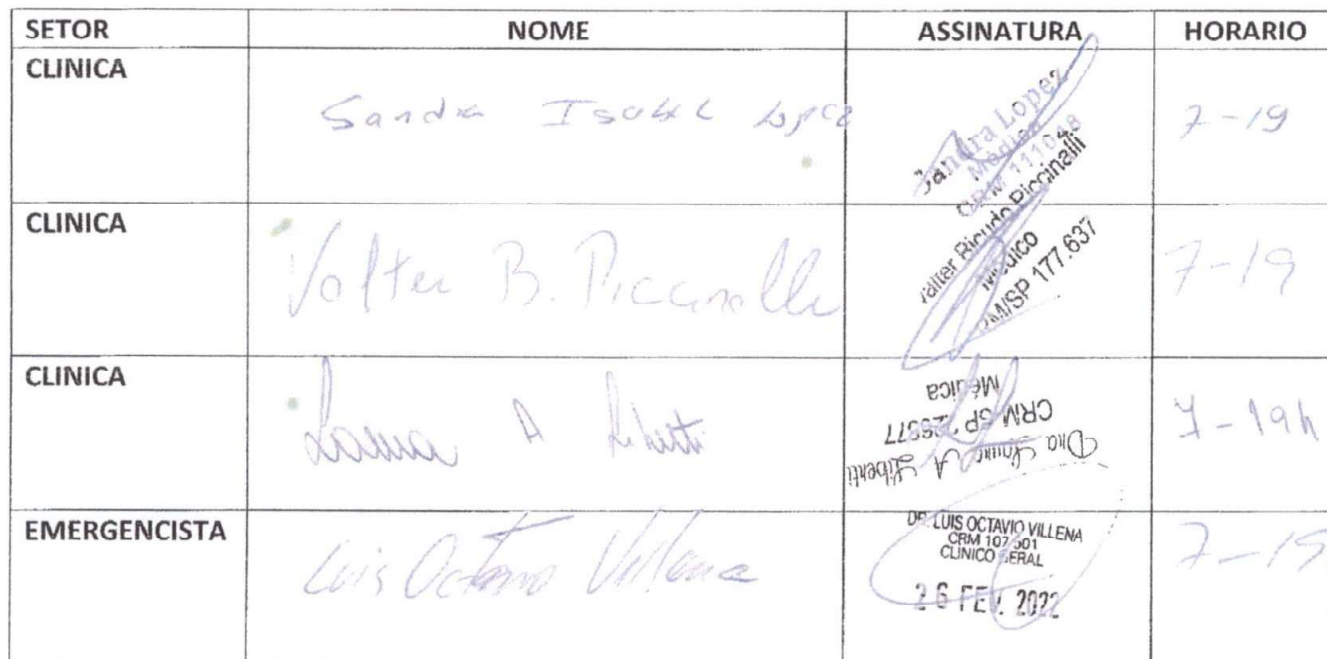 SETOR NOME ASSINATURA HORARIO
CLINICA Sandra Isabel Lopez 7-19
Sandra Lopez
Médica
CRM 111048
CLINICA Valter B. Piccinelli 7-19
Valter Piccinalli
Médico
CRM/SP 177.637
CLINICA Laura A Liberti 7-19h
Dra Laura A Liberti
CRM SP
Médica
EMERGENCISTA Luis Octavio Villena 7-19
DR. LUIS OCTAVIO VILLENA
CRM 107.501
CLINICO GERAL
26 FEV. 2022